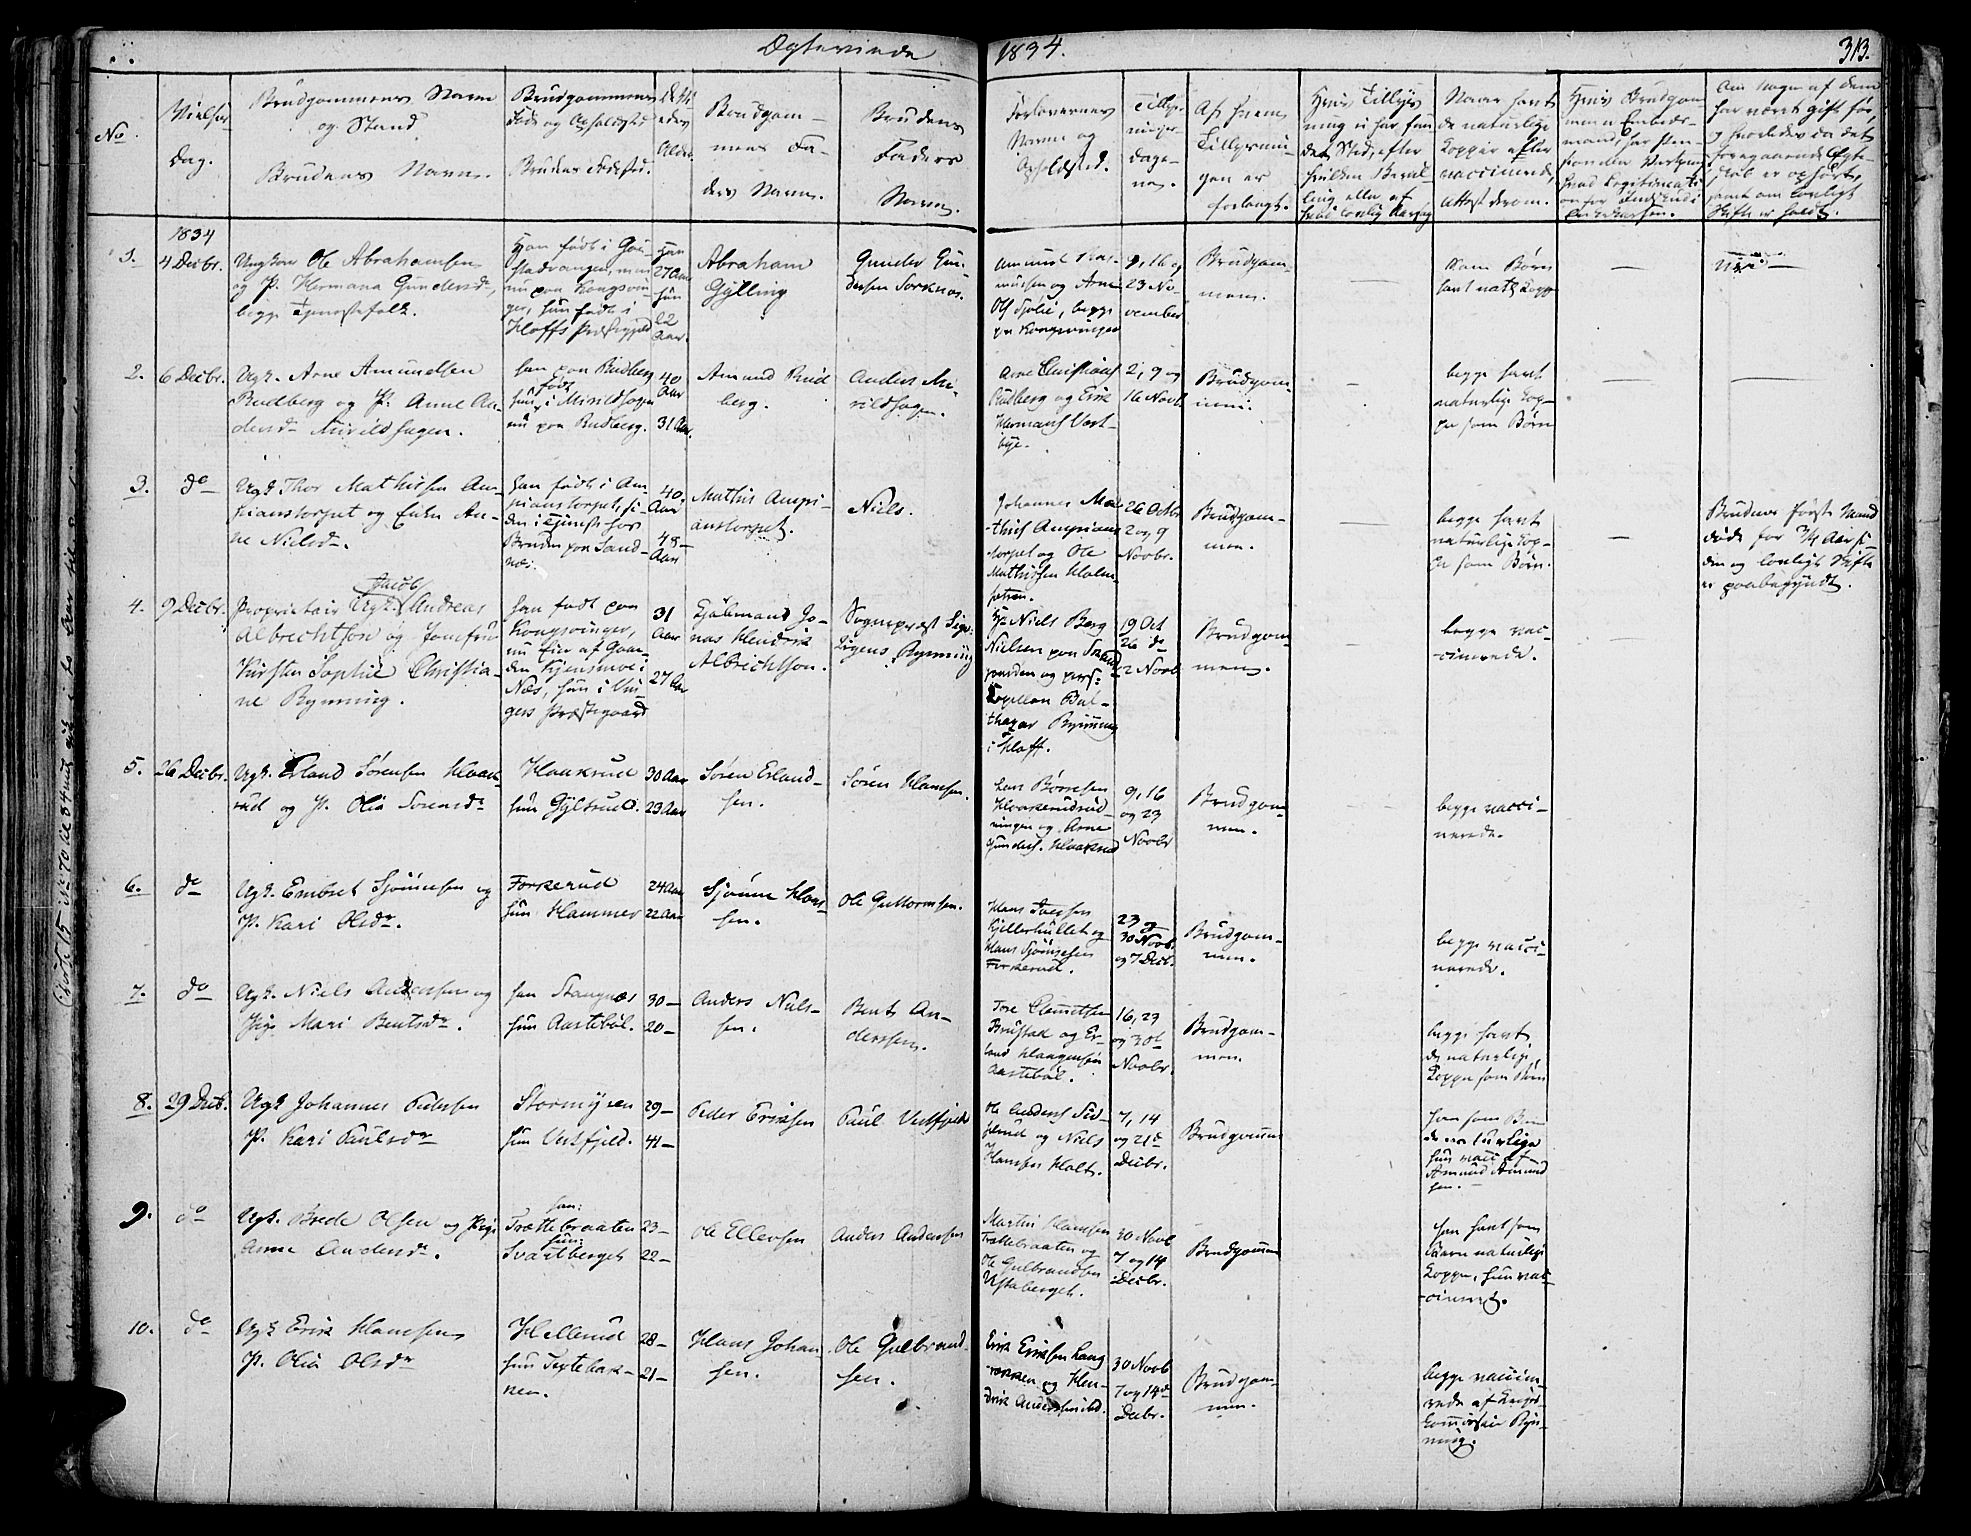 Ægteviede
1834.
313.
No
Vielses
Dag.
Brudgommens Navn
og Stand
Brudens Navn.
Brudgommens
Føde og Opholdsted
Brudens Fødested.
Alder.
Brudgom-
mens Fa-
ders Navn.
Brudens
Faders
Navn.
Forlovernes
Navne og
Opholdsted.
Tillys-
ninger
dage-
ne.
Af hvem
Tillysnin-
gen er
forlangt.
Hvis Tillys
ning ei har fun
det Sted, efter
hvilken Bevil-
ling eller af
hvad lovlig Aarsag
Naar havt
de naturlige
Kopper eller
vaccinerede,
Attest derom.
Hvis Brudgom
men er Embeds-
mand, har Pen-
sion eller Vartpen
hvad Legitimati
on for Indskud i
Enkekassen.
Om nogen af dem
har været gift før,
og hvorledes da det
foregaaende Ægte-
skab er ophørt,
samt om lovligt
Skifte er holdt.
1834
1.
4 Decbr.
Ungkarl Ole Abrahamsen
og P. Hermana Gundersdr,
begge Tjenestefolk.
Han født i Gou-
stadvangen, men
nu paa Kongsvin-
ger, hun født i
Hoffs Præstegjeld
Han
27 Aar
hun
22
Aar.
Abraham
Gylling
Gunder Gun-
dersen Sorknæs.
Amund Ras-
mussen og Arne
Ols Fjelie, begge
paa Kongsvinger
9, 16 og
23 No-
vember
Brudgom-
mens.
som Børn
havt natl Kopp
—
nei. —
2.
6 Decbr.
Ugk. Arne Amundsen
Rudberg og P. Anne An-
dersdr Mirildhagen.
han paa Rudberg
født
hun i Mirildhagen
nu paa Rudberg.
40
Aar
31 Aar.
Amund Rud
berg.
Anders Mi-
rildhagen.
Arne Christians
Rudberg og Erik
Hermans Vest-
bye.
2, 9 og
16 Novb.
Brudgom-
men.
—
begge havt
naturlige Kop-
per som Børn
—
—
3.
do —
Ugk Thor Mathisen Am-
pianstorpet og Enke An-
ne Nielsdr.
han født i Am-
pianstorpet, si-
den i Tjeneste hos
Bruden paa Sand-
næs.
40.
Aar
48 —
Aar
Mathis Ampi-
anstorpet.
Niels.
Johannes Ma-
this Ampians
torpet og Ole
Mathissen Holm
26 Octbr
2 og 9
Novbr.
Brudgom-
men.
—
begge havt
naturlige Kop-
per som Børn.
—
Brudens første Mand
døde for 3/4 Aar si-
den og lovligt Skifte
er paabegyndt.
4.
9 Decbr.
Jacob
Proprietair Ugk. Andreas
Albrechtson og Jomfru
Kirsten Sophie Christia-
ne Rynning.
han født paa
Kongsvinger,
nu Eier af Gaar-
den Hjensmoe i
Næs, hun i Vin-
gers Præstegaard
31
Aar
27 Aar
Kjøbmand Jo-
nas Hendrik
Albrechtson.
Sognepræst Sige-
Rynning
Hr Niels Berg
Nielsen paa
gaarden og pers:
Capellan Bal-
thazar Rynning
i Hoff.
19 Oct
26 do
2 Novb
Brudgom
mens.
—
begge vac-
cinerede.
—
5.
26 Decbr.
Ugk. Erland Sørensen Haack
rud og P. Olia Sørensdr
Haakrud
hun Gylterud.
30 Aar
23 Aar
Søren Erland-
sen.
Søren Hansen.
Lars Børresen
Haakerudrud
ningen og Arne
Gunders. Haakrud
9, 16
og 23
Novbr
Brudgom-
men.
begge vacci-
nerede.
6.
do
Ugk. Embret Sjønnesen og
P. Kari Olsdr.
Forkerud
hun Hammer
24 Aar
22 Aar
Sjønne Han-
sen.
Ole Guttormsen.
Hans Iversen
Kjellerhullet og
Hans Sjønnesen
Forkerud.
23 og
30 Novb.
og 7 Decb.
Brudgom-
men.
begge vacci-
nerede.
7.
do
Ugk. Niels Andersen og
Pige Mari Bentsdr.
han Stangnæs
hun Aastebøl.
30 —
20 —
Anders Niels-
sen.
Bent An-
derssen.
Tore Clemetsen
Brustad og Er-
land Haagensen
Aastebøl.
16, 23
og 30te
Novbr.
Brudgom-
men.
begge havt
de naturlige
Kopper som Børn
8.
29 Decb.
Ugk Johannes Pedersen
P. Kari Paulsdr
Stormyren
hun Vestfjeld.
29 —
41 —
Peder Eriksen
Paul Vestfjeld
Ole Anders
og Niels
Hansen Holt.
7, 14
og 21de
Decbr.
Brudgommen
han som Barn
de naturlige
hun vacc af
Amund Amund
sen. —
9.
do
Ugk. Brede Olsen og Pige
Anne Andersdr.
han:
Trættebraaten
hun:
Svartberget
23 —
22 —
Ole Ellevsen
Anders Anderssen
Martin Hansen
Trættebraaten og
Ole Gulbrandsen
Ulsaberget.
30 Novb
7 og 14
Decbr.
Brudgommen
han havt som
Barn naturlige
Kopper, hun vac-
cineret.
10.
do
Ugk Erik Hansen
P. Olia Olsdr
Hellerud
hun Teptebak-
ken.
28 —
21 —
Hans Johan-
sen.
Ole Gulbrand-
sen.
Erik Eriksen Lang
og Hen-
drik
30 Novb
7 og 14de
Decbr.
Brudgom-
men.
begge vaccine-
rede af
Ryn-
ning.